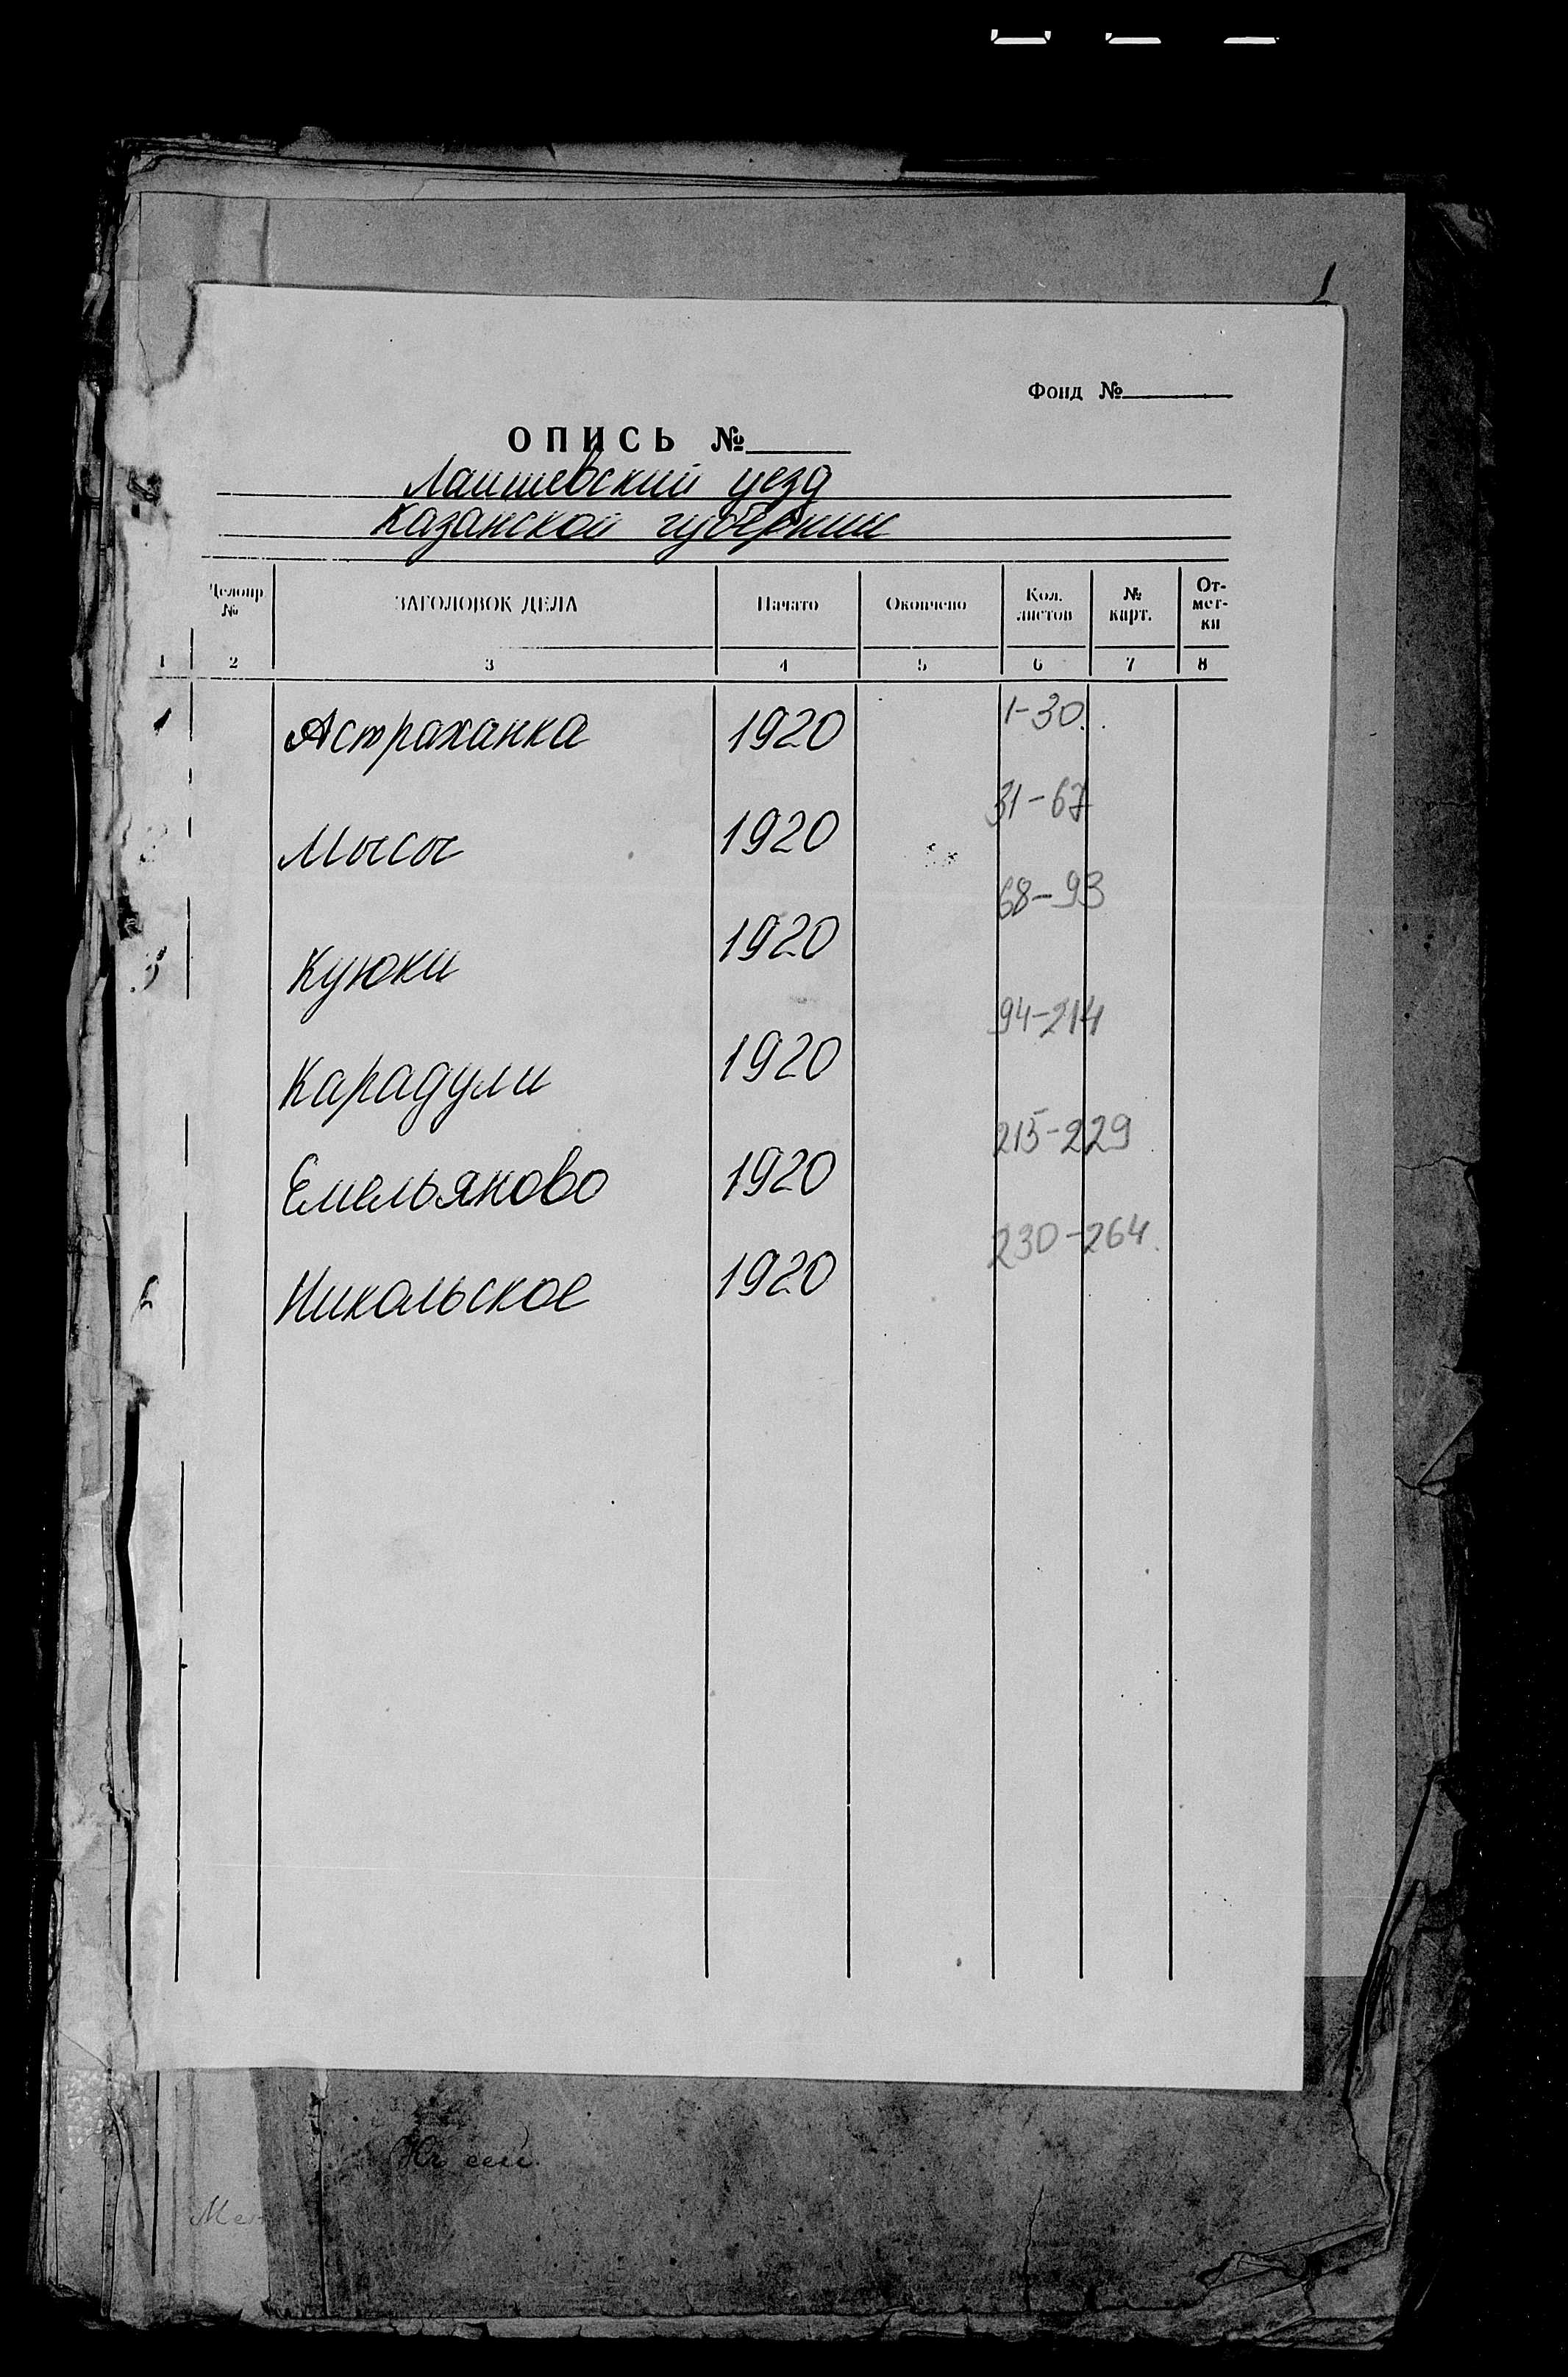 1
Фонд №
ОПИСЬ №
Лаишевский уезд
Казанской губернии
Целопр № ЗАГОЛОВОК ДЕЛА Начато Окончено Кол. листов № карт. От-мет-ки
1 2 3 4 5 6 7 8
1 Астраханка 1920 1-30.
Мысы 1920 31-67
3 Куюки 1920 68-93
Карадули 1920 94-214
Емельяново 1920 215-229
Никольское 1920 230-264.